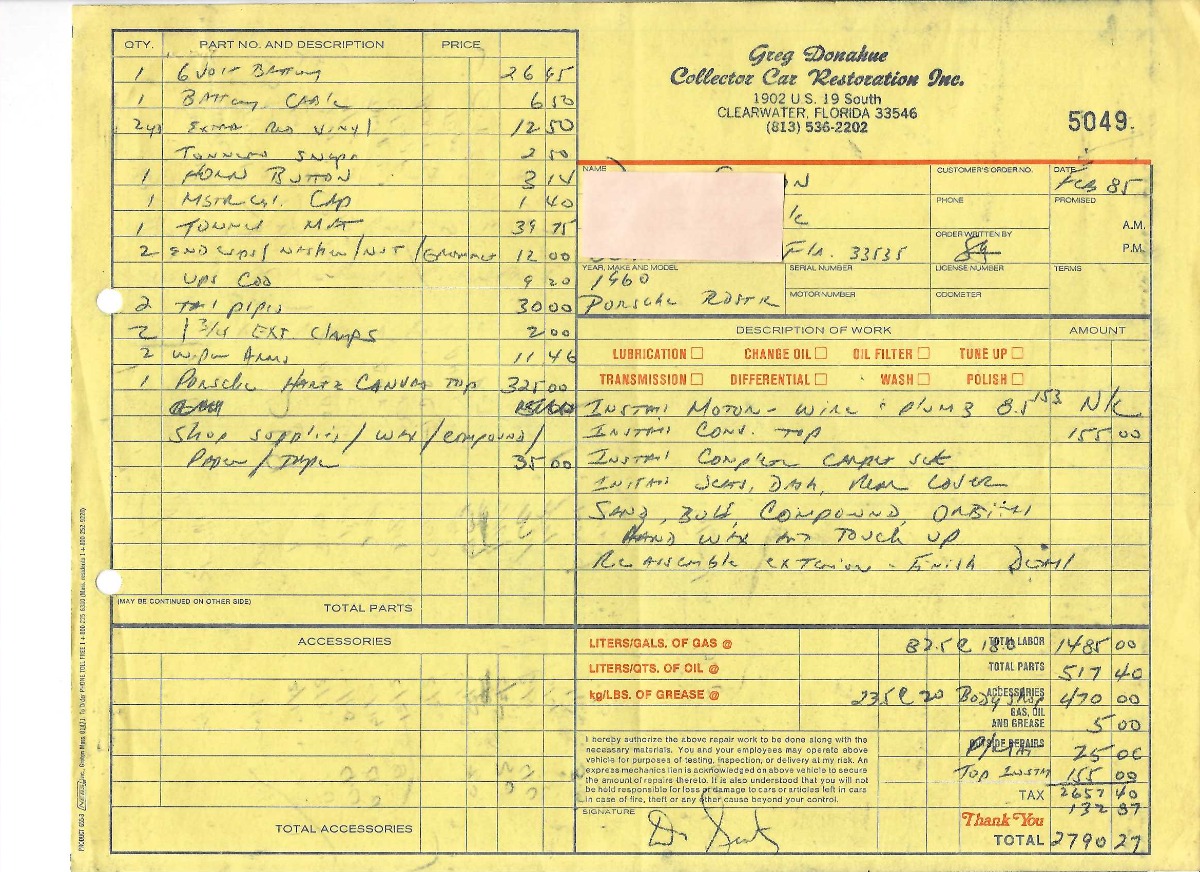 QTY. PART NO. AND DESCRIPTION PRICE
1 6 Volt Battery 26 95
1 Battery Cable 6 50
2yd Extra Red Vinyl 12 50
Tonneau Snaps 2 50
1 Horn Button 3 14
1 Mstr Cyl. Cap 1 40
1 Tonneau Mat 39 75
2 End Ups/ Washer/Nut/Grommet 12 00
UPS COD 9 20
2 Tail Pipes 30 00
2 1 3/4 Ext Clamps 2 00
2 Wiper Arms 11 46
1 Porsche Hartz Canvas Top 325 00
Shop Supplies/Wax/Compound/
Paper/Tape 35 00
(MAY BE CONTINUED ON OTHER SIDE) TOTAL PARTS
ACCESSORIES
TOTAL ACCESSORIES
Greg Donahue
Collector Car Restoration Inc.
1902 U.S. 19 South
CLEARWATER, FLORIDA 33546
(813) 536-2202
5049
NAME CUSTOMER'S ORDER NO. DATE
N Feb 85
PHONE PROMISED
A.M.
ORDER WRITTEN BY P.M.
Fla. 33535
YEAR, MAKE AND MODEL SERIAL NUMBER LICENSE NUMBER TERMS
1960
MOTOR NUMBER ODOMETER
Porsche Rdstr
DESCRIPTION OF WORK AMOUNT
LUBRICATION CHANGE OIL OIL FILTER TUNE UP
TRANSMISSION DIFFERENTIAL WASH POLISH
Install Motor - Wire & Plumb 8.5 153 N/C
Install Conv. Top 155 00
Install Complete Carpet Set
Install Seats, Dash, Rear Cover
Sand, Buff, Compound, Orbital
Hand Wax and Touch Up
Reassemble Exterior - Finish Detail
LITERS/GALS. OF GAS @ 82.5 @ 18.0 TOTAL LABOR 1485 00
LITERS/QTS. OF OIL @ TOTAL PARTS 517 40
kg/LBS. OF GREASE @ 23.5 @ 20 Body Shop ACCESSORIES 470 00
GAS, OIL AND GREASE 5 00
OUTSIDE REPAIRS P/Mat 25 00
Top Instal 155 00
2657 40
TAX 132 87
Thank You
TOTAL 2790 27
I hereby authorize the above repair work to be done along with the
necessary materials. You and your employees may operate above
vehicle for purposes of testing, inspection, or delivery at my risk. An
express mechanics lien is acknowledged on above vehicle to secure
the amount of repairs thereto. It is also understood that you will not
be held responsible for loss or damage to cars or articles left in cars
in case of fire, theft or any other cause beyond your control.
SIGNATURE